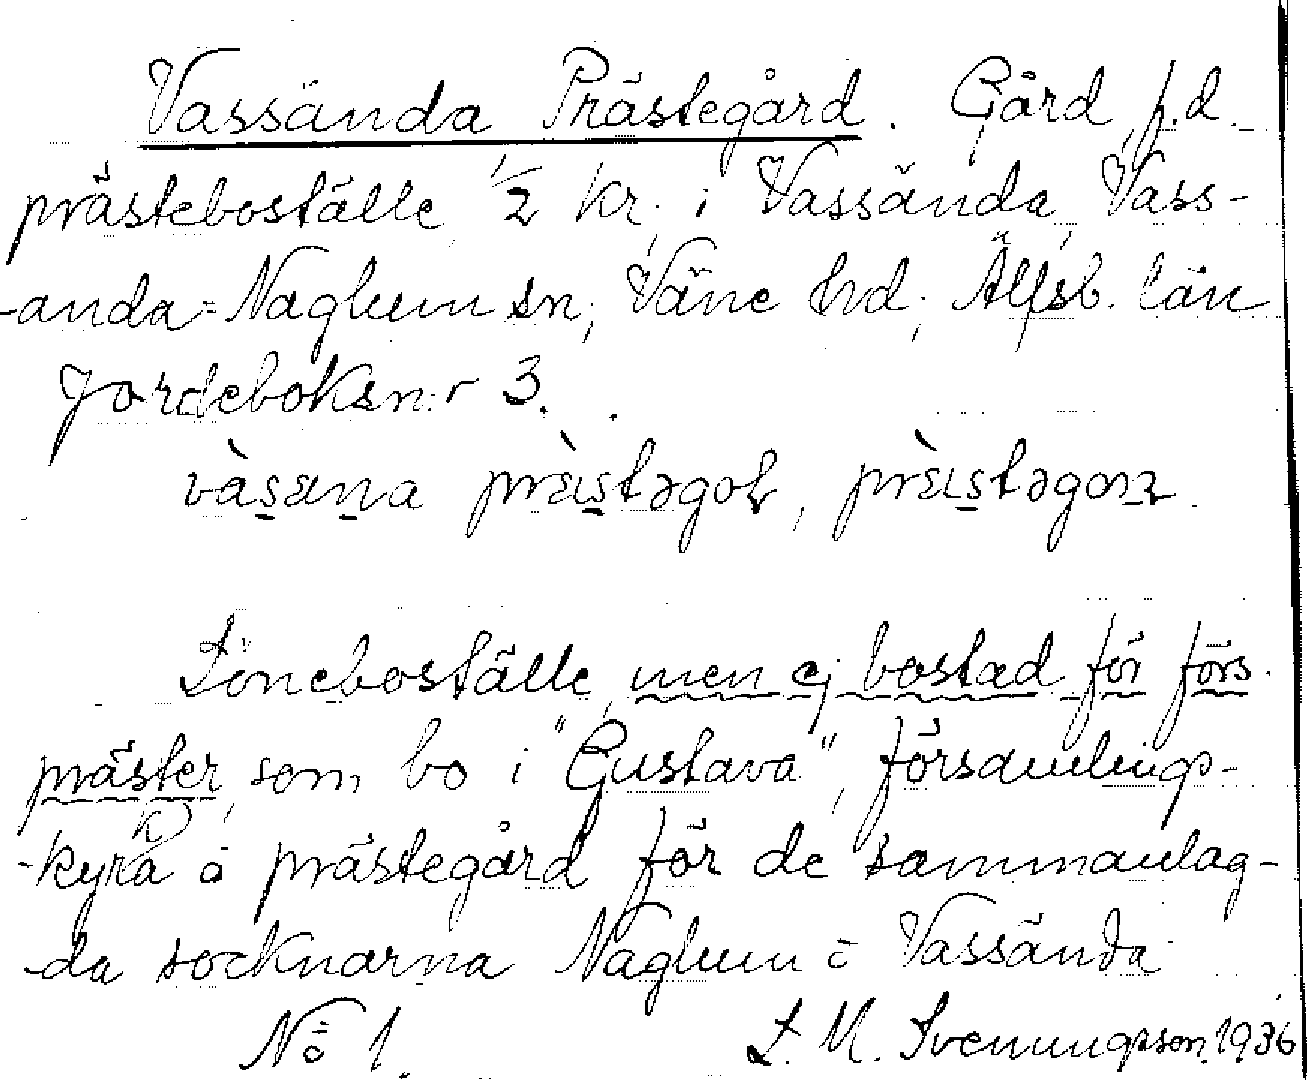 Vassända Prästegård. Gård, f.d.
prästeboställe 1/2 kr. i Vassända, Vass-
-anda-Naglum sn, Väne hd, Älfsb. län
Jordeboksn:r 3.
Löneboställe, men ej bostad för förs.
präster, som bo i "Gustava", församlings-
-kyrka å prästegård för de sammanlag-
-da socknarna Naglum o Vassända.
No 1. L. M. Svenungsson, 1936